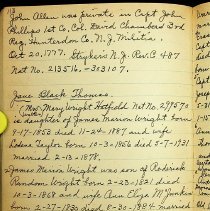 13
John Allen was private in Capt John
Phillips 1st Co, Col. David Chambers 3rd
Reg. Hunterdon Co. N. J. Militia.
Oct 20, 1777. Strykers N. J. Rev. G 487
Nat No. 213516-303107.
Jane Black Thomas
(Mrs Mary Wright Hatfield Nat No. 279570
is daughter of James Marion Wright born
8-17-1853 died 11-24-1887 and wife
Taylor born 3-10-1856 died 5-7-1931
married 2-13-1878.
James Marion Wright was son of Roderick
Random Wright born 2-23-1821 died
10-3-1868 and wife Ann Eliza
born 2-27-1830 died 8-30-1884 married